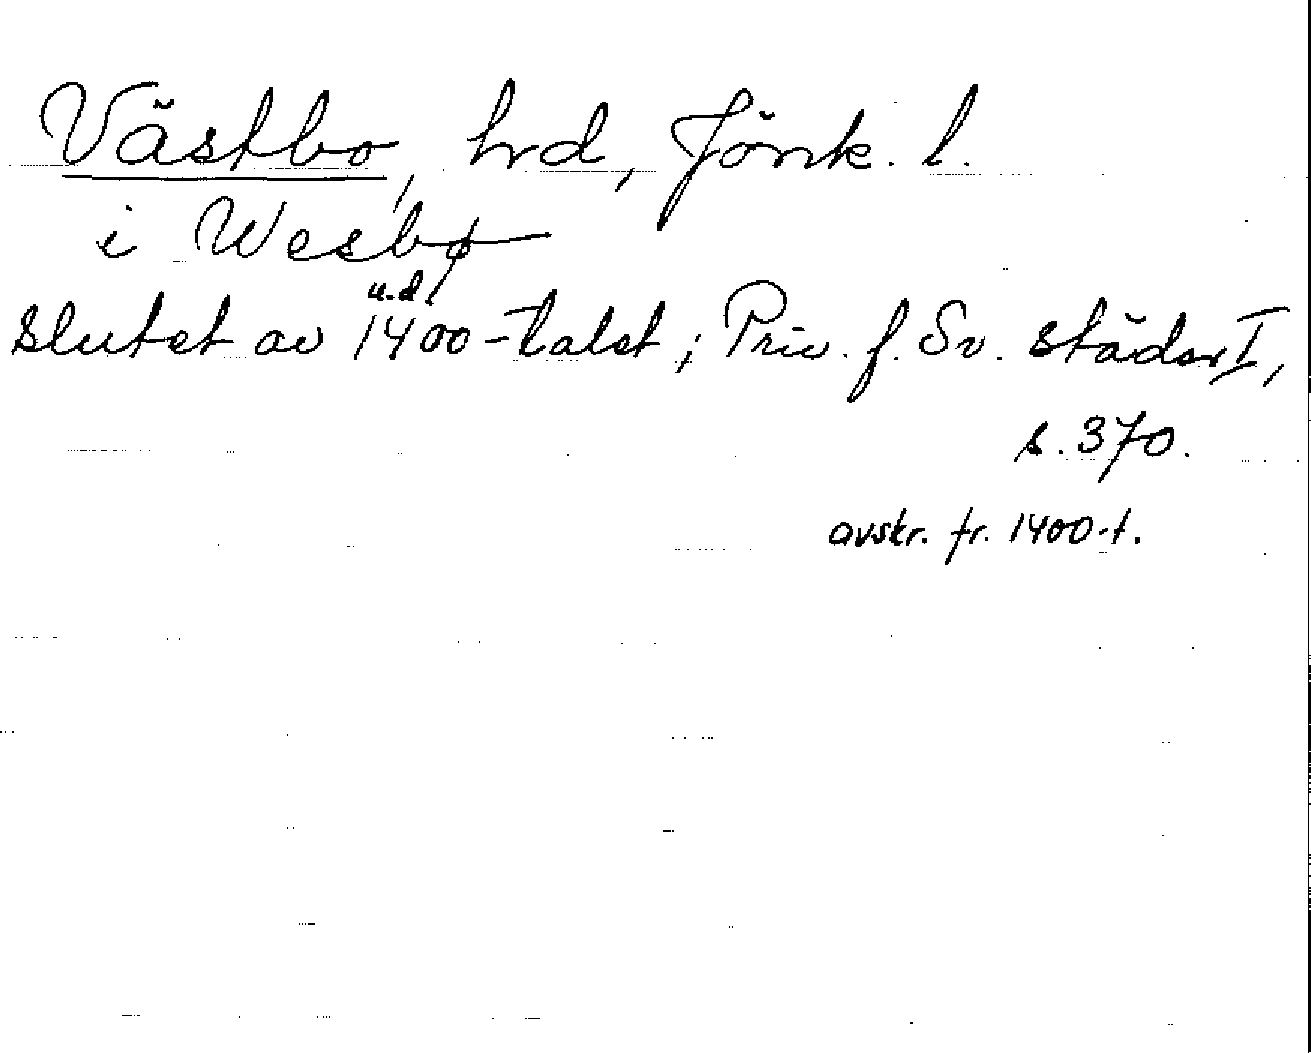 Västbo, hrd, Jönk. l.
i Wesbø
u.d.
slutet av 1400-talet; Priv. f. Sv. städer I,
s. 370.
avskr. fr. 1400-t.